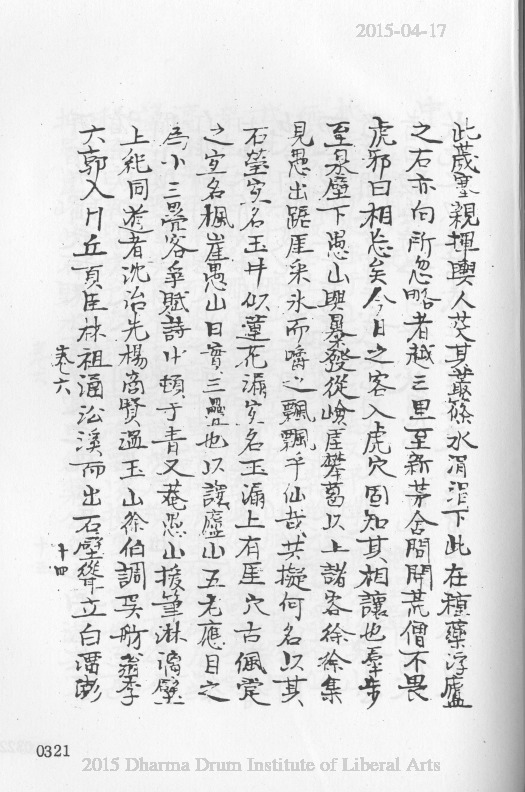 2015-04-17
此歲里親揮輿人芟其叢篠水涓涓下此在種藥浮廬
之右亦向所忽略者越三里至新茅舍問開荒僧不畏
虎邪曰相忘矣今日之客入虎穴固知其相讓也羣步
至泉壁下愚山興暴發從嶮厓攀葛以上諸客徐徐集
見愚出踞厓采氷而嚼之飄飄乎仙哉共擬何名以其
石瑩宜名玉井似蓮花漏宜名玉漏上有厓穴古佩覺
之宜名楓崖愚山曰實三疊也以讓廬山五老應目之
爲小三疊客爭賦詩小頓于青又菴愚山援筆淋漓壁
上紀同遊者沈治先楊商賢過玉山徐伯調吳舫翁李
六郭入川丘貢臣林祖涌沿溪而出石壁聳立白濆澎
卷六
十四
0321
2015 Dharma Drum Institute of Liberal Arts